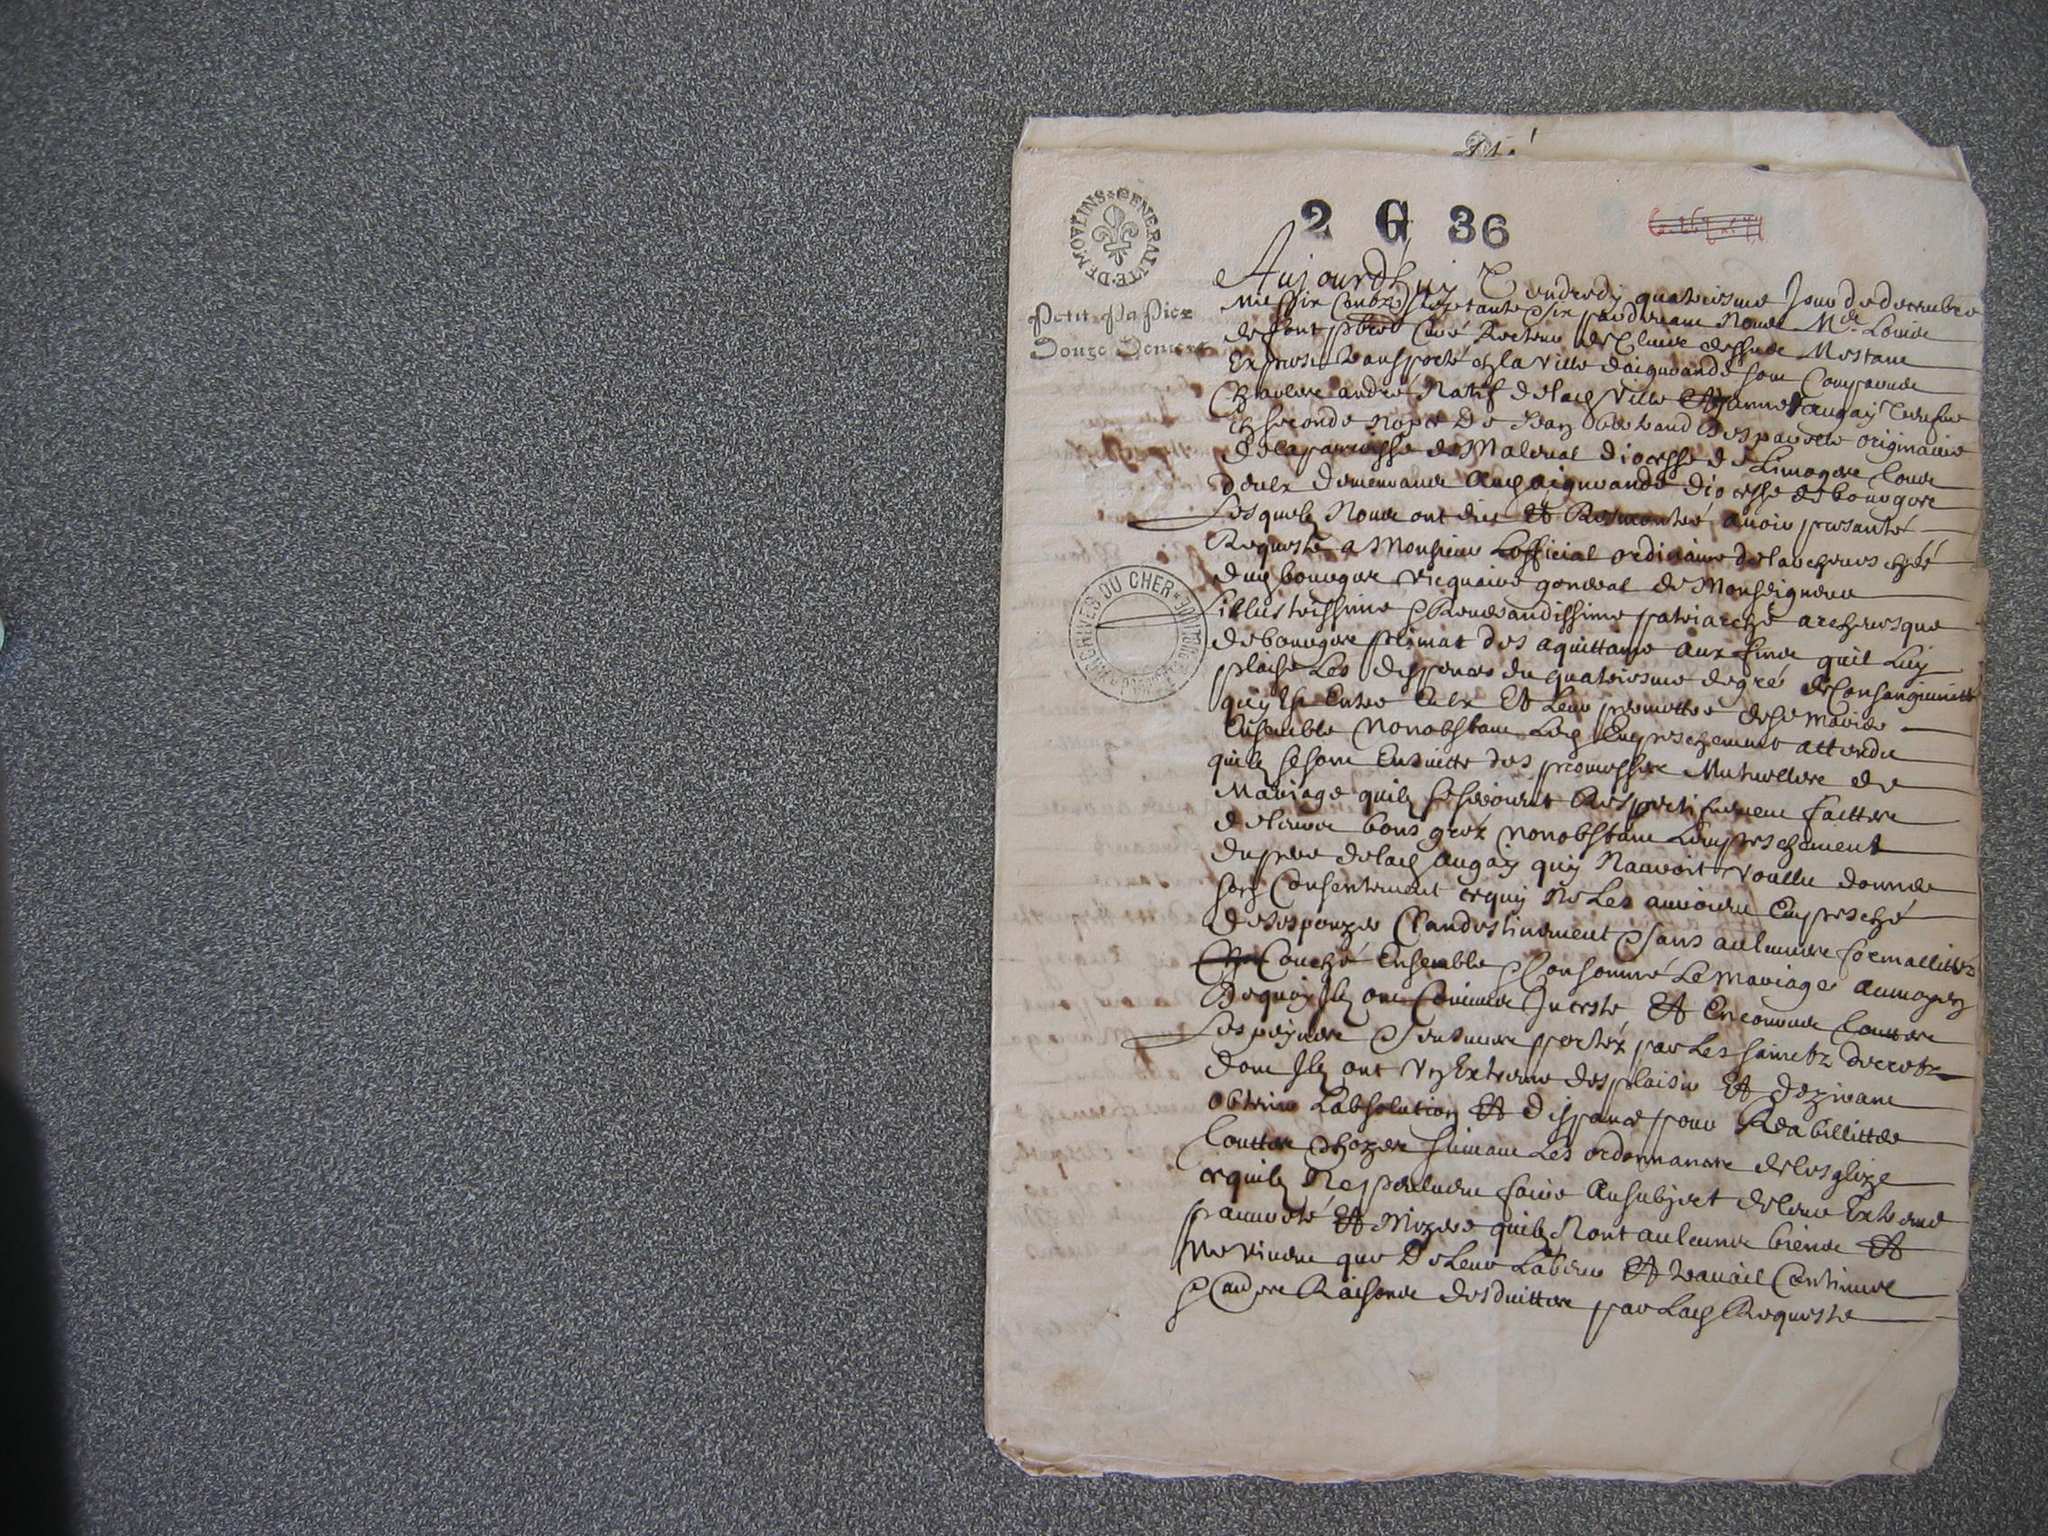 2 G 36
GENERALITE DE MOULINS
Petit Papier
Douze Deniers
ARCHIVES DU CHER * BOURGES
Aujourdhuy Vendredy quatriesme Jour de decembre
Mil Six Centz Septante Six pardevant Nous Me Louis
curé Recteur de
Expres transporté en la Ville daigurande sont Comparus
andré Natif de lad Ville Et anne augay Veufve
En seconde Nopce De Jean originaire
de la parroisse de Malleval diocesse de Limoges tous
deux demeurans aud aigurande diocesse de bourges
Lesquelz Nous ont dict Et Remontré avoir presanté
Requeste a Monsieur Lofficial ordinaire de larchevesché
dud bourges vicquaire general de Monseigneur
Lillustrissime Reverandissime patriarche archevesque
de bourges primat des aquittaine aux fins quil Luy
plaise Les dispencer du quatriesme degré de Consanguinité
quy Est Entre Eulx Et Leur permettre de se marier
Ensemble Nonobstant Led Empeschement attendu
quilz se sont Ensuitte des promesses Mutuelles de
Mariage quilz se seroient Respectivement faittes
de leurs bons grez nonobstant Lempeschement
du pere de lad augay quy Nauroit voullu donner
son Consentement ce quy Ne Les auroit Empesché
de sespouzer Clandestinement Sans aulcunes formallittés
Couché Ensemble Consommé Le Mariage au moyen
De quoy Ilz ont Commis Inceste Et Encourus touttes
Les peynes Censures portéz par Les Sainctz decretz
dont Ilz ont un Extreme desplaisir Et dezirant
obtenir Labsolution Et dispance pour Reabillitter
touttes Chozes suivant Les ordonnances de Lesglize
ce quilz Ne peuvent faire au subject de leur Extreme
pauvreté Et Mizere quilz Nont aulcuns biens Et
Ne vivent que De Leur Labeur Et travail Continuel
Raisons desduittes par Lad Requeste